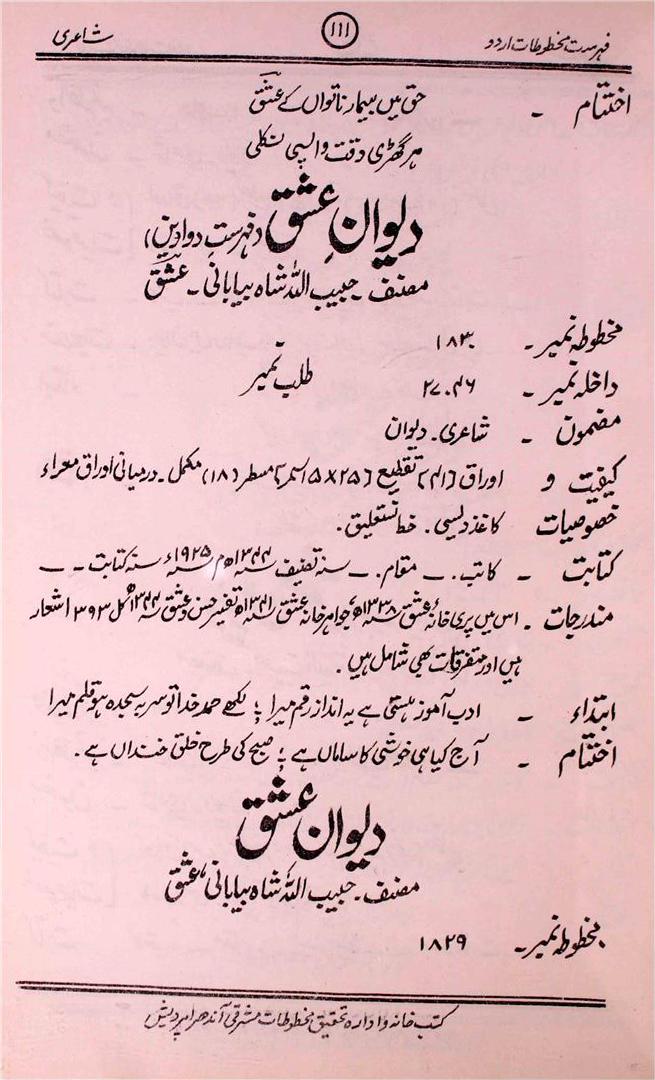 فہرست مخطوطات اردو ١١١ شاعری
اختتام - حق میں بیمار ناتواں کے عشقؔ
ہر گھڑی دقت واپسی نکلی
دیوانِ عشق (فہرستِ دواوین)
مصنف - حبیب اللہ شاہ بیابانی - عشقؔ
مخطوطہ نمبر - ١٨٣٠
داخلہ نمبر - ٢٧٠٤٦ طلب نمبر -
مضمون - شاعری - دیوان
کیفیت و اوراق (٢٤١) تقطیع (٢٥×١٥) سمر، مسطر (١٨) مکمل - درمیانی اوراق معراء
خصوصیات کاغذ دیسی - خط نستعلیق -
کتابت - کاتب - - مقام - - سنہ تصنیف ١٣٤٤ھ م ١٩٢٥ء سنہ کتابت - -
مندرجات - اس میں پری خانۂ عشق ١٣٣٨ھ، جواہر خانہ عشق ١٣٤١ھ، تفسیر حسن و عشق ١٣٤٤ھ کل ٣٩٣ اشعار
ہیں اور متفرقات بھی شامل ہیں -
ابتداء - ادب آموز ہستی ہے یہ اندازِ رقم میرا ؛ لکھے حمد خدا تو سر بہ سجدہ ہو قلم میرا
اختتام - آج کیا ہی خوشی کا ساماں ہے ؛ صبح کی طرح خلق خنداں ہے -
دیوان عشق
مصنف - حبیب اللہ شاہ بیابانی، عشقؔ
مخطوطہ نمبر - ١٨٢٩
کتب خانہ و ادارہ تحقیق مخطوطات مشرقی آندھرا پردیش